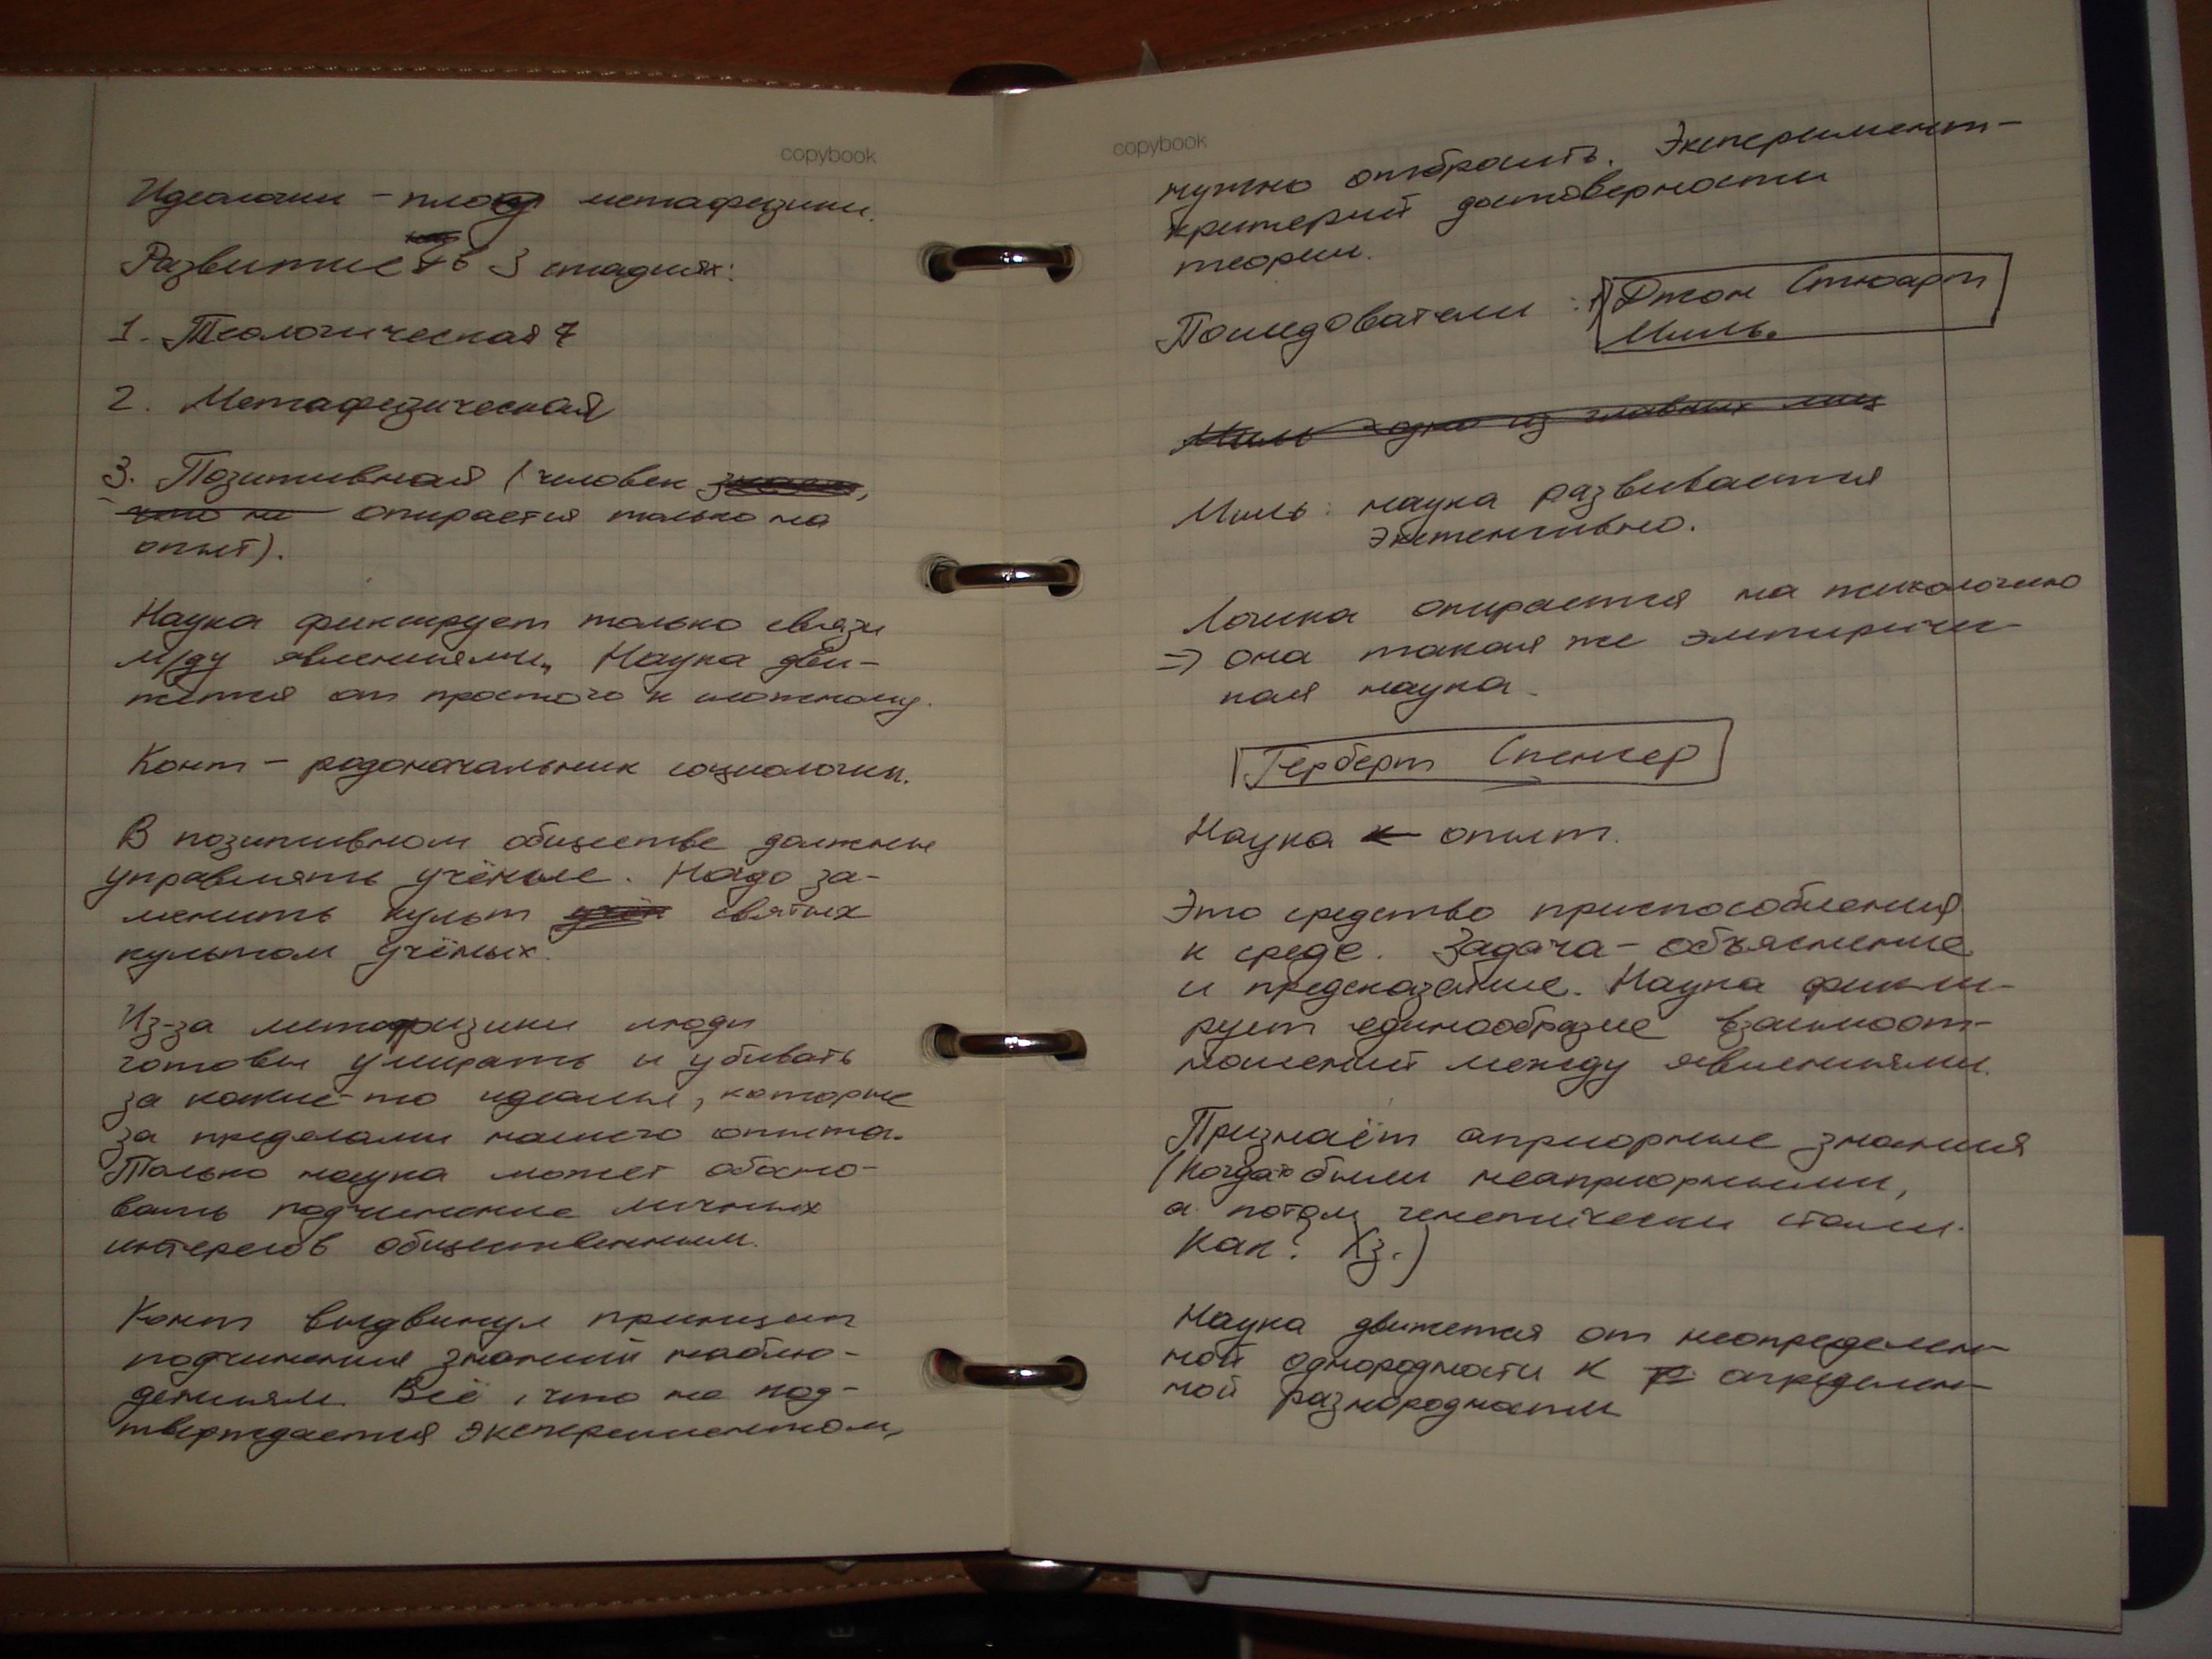 copybook
Идеологии - плод метафизики.
Развитие в 3 стадиях:
1. Теологическая
2. Метафизическая
3. Позитивная (человек
что не опирается только на
опыт).
Наука фиксирует только связи
м/ду явлениями. Наука дви-
жется от простого к сложному.
Конт - родоначальник социологии.
В позитивном обществе должны
управлять учёные. Надо за-
менить культ учён святых
культом учёных.
Из-за метафизики люди
готовы умирать и убивать
за какие-то идеалы, которые
за пределами нашего опыта.
Только наука может обосно-
вать подчинение личных
интересов общественным.
Конт выдвинул принцип
подчинения знаний наблю-
дениям. Всё, что не под-
тверждается экспериментом,
copybook
нужно отбросить. Эксперимент -
критерий достоверности
теории.
Последователи: 1) Джон Стюарт
Милль.
Милль - один из главных лиц
Милль: наука развивается
экстенсивно.
Логика опирается на психологию
=> она такая же эмпиричес-
кая наука.
Герберт Спенсер
Наука ← опыт.
Это средство приспособления
к среде. Задача - объяснение
и предсказание. Наука фикси-
рует единообразие взаимоот-
ношений между явлениями.
Признаёт априорные знания
(когда-то были неаприорными,
а потом генетически стали.
Как? Хз.)
Наука движется от неопределен-
ной однородности к р определен-
ной разнородности